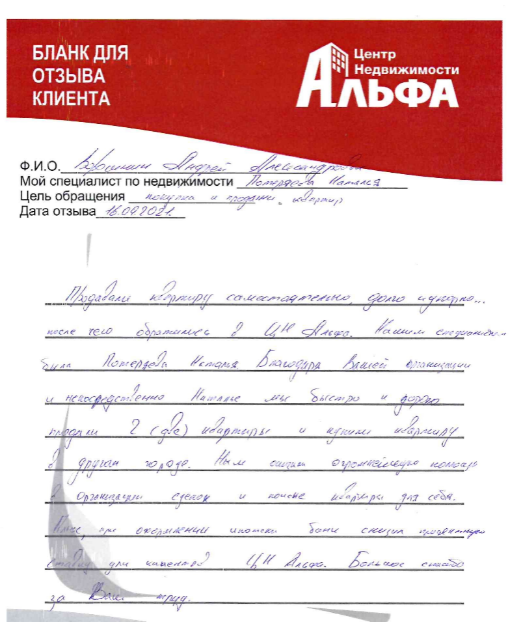 БЛАНК ДЛЯ
ОТЗЫВА
КЛИЕНТА
Центр
Недвижимости
АЛЬФА
Ф.И.О. Андрей Александрович
Мой специалист по недвижимости Потердова Наталья
Цель обращения покупка и продажи квартир
Дата отзыва 16.09.2021.
Продавали квартиру самостоятельно, долго и нудно...
после чего обратились в ЦН Альфа. Нашим специалистом
была Потердова Наталья Благодаря Вашей организации
и непосредственно Наталье мы быстро и дорого
продали 2 (две) квартиры и купили квартиру
в другом городе. Нам оказали огромнейшую помощь
в организации сделок и поиске квартиры для себя.
Плюс, при оформлении ипотеки банк снизил процентную
ставку для клиентов ЦН Альфа. Большое спасибо
за Ваш труд.